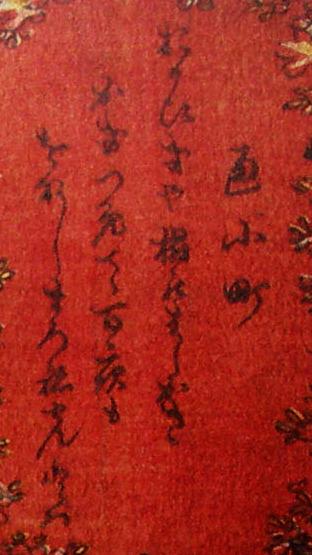 通小町
おもひきや榻のはしかき
かきつめて百夜も
おなしまろねせんとは